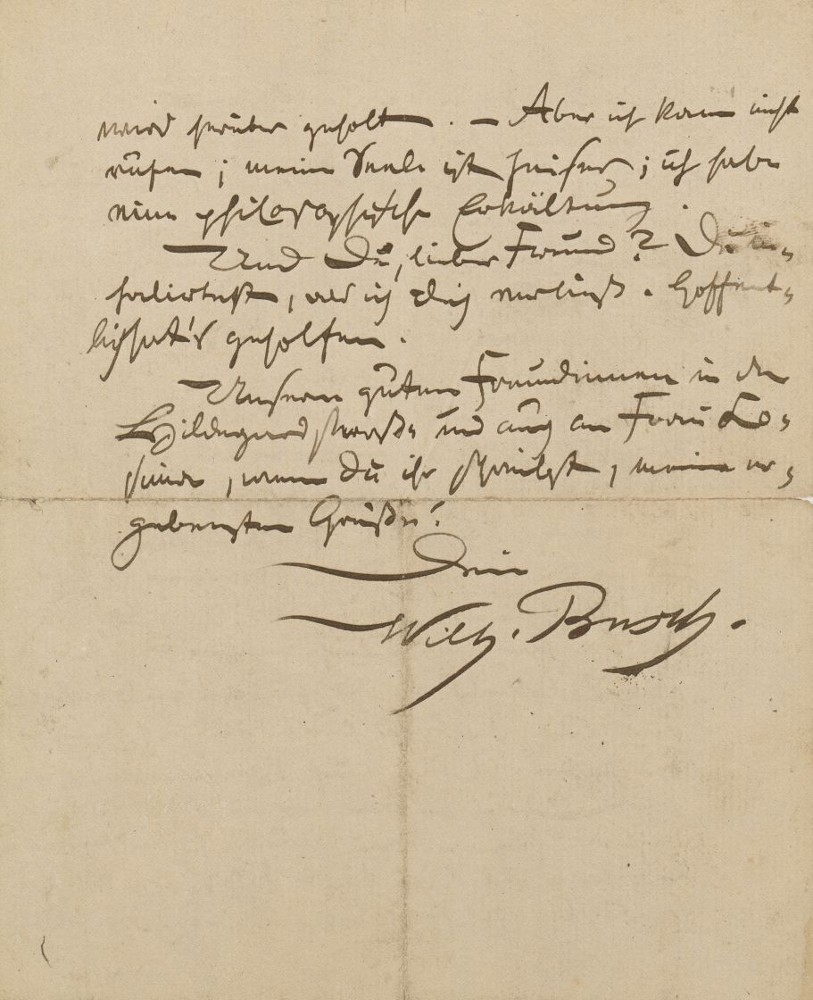 wird herüber geholt. – Aber ich kann nicht
rufen; meine Seele ist heiser; ich habe
eine philosophische Erkältung.
Und Du, lieber Freund? Du in-
halirtest, als ich Dich verließ. Hoffent-
lich hat's geholfen.
Unsern guten Freundinnen in der
Hildegardstraße und auch an Frau Le-
wenn Du ihr schreibst, meine er-
gebensten Grüße!
Dein
Wilh. Busch.